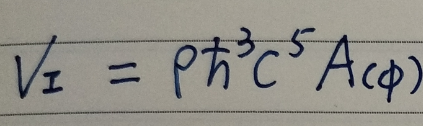 V_I = ρħ³C⁵A(φ)